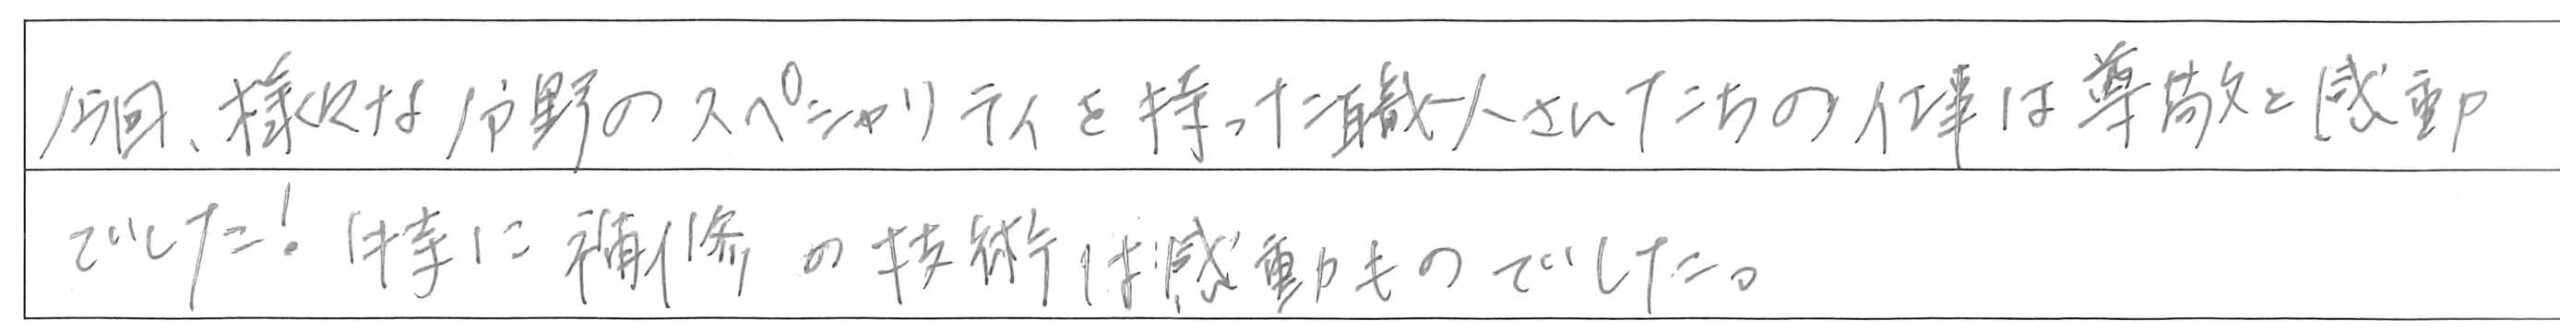 今回、様々な分野のスペシャリティを持った職人さんたちの仕事は尊敬と感動
でした！特に補修の技術は感動ものでした。